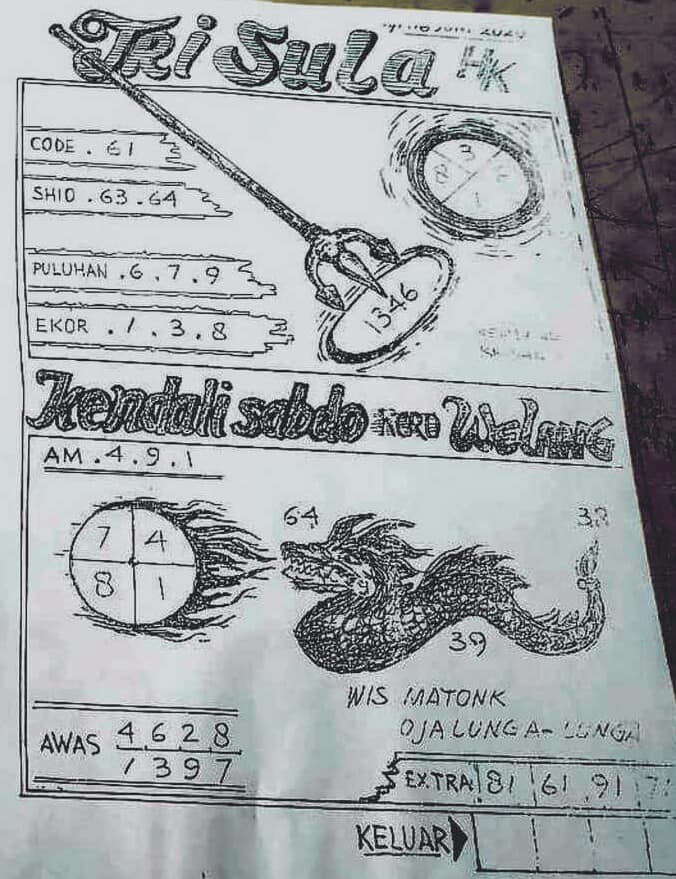 Tri Sula HK
CODE . 61
3
8
1
SHIO . 63.64
PULUHAN .6.7.9
1346
EKOR . 1 . 3 . 8
Kendali sabdo Welang
AM . 4 . 9 . 1
7 4
8 1
64
39
WIS MATONK
OJA LUNGA - LUNGA
AWAS 4 6 2 8
1 3 9 7
EXTRA 81 61 91
KELUAR